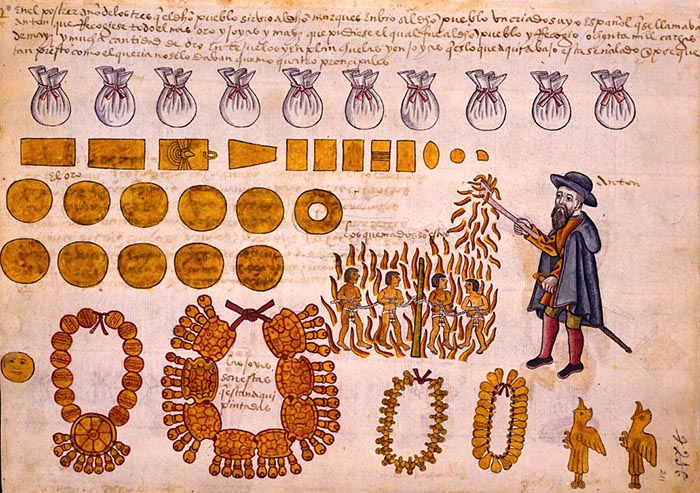 En el postrer año de los tres q el dho pueblo sirvio al dho marques enbio al dho pueblo un criado suyo español que se llama
anton que Recogiese todo el mas oro y joyas y mayz que pudiese el qual fue al dho pueblo y Recogio ochenta mill cargas
de mayz y mucha cantidad de oro en tejuelos y en planchuelas y en joyas ques lo que aqui abajo esta señalado porque
tan presto como el queria no se lo daban quemo quatro prencipales
el oro
Anton
los quemados son estos
las joyas
son estas
q estan aqui
pintadas
211